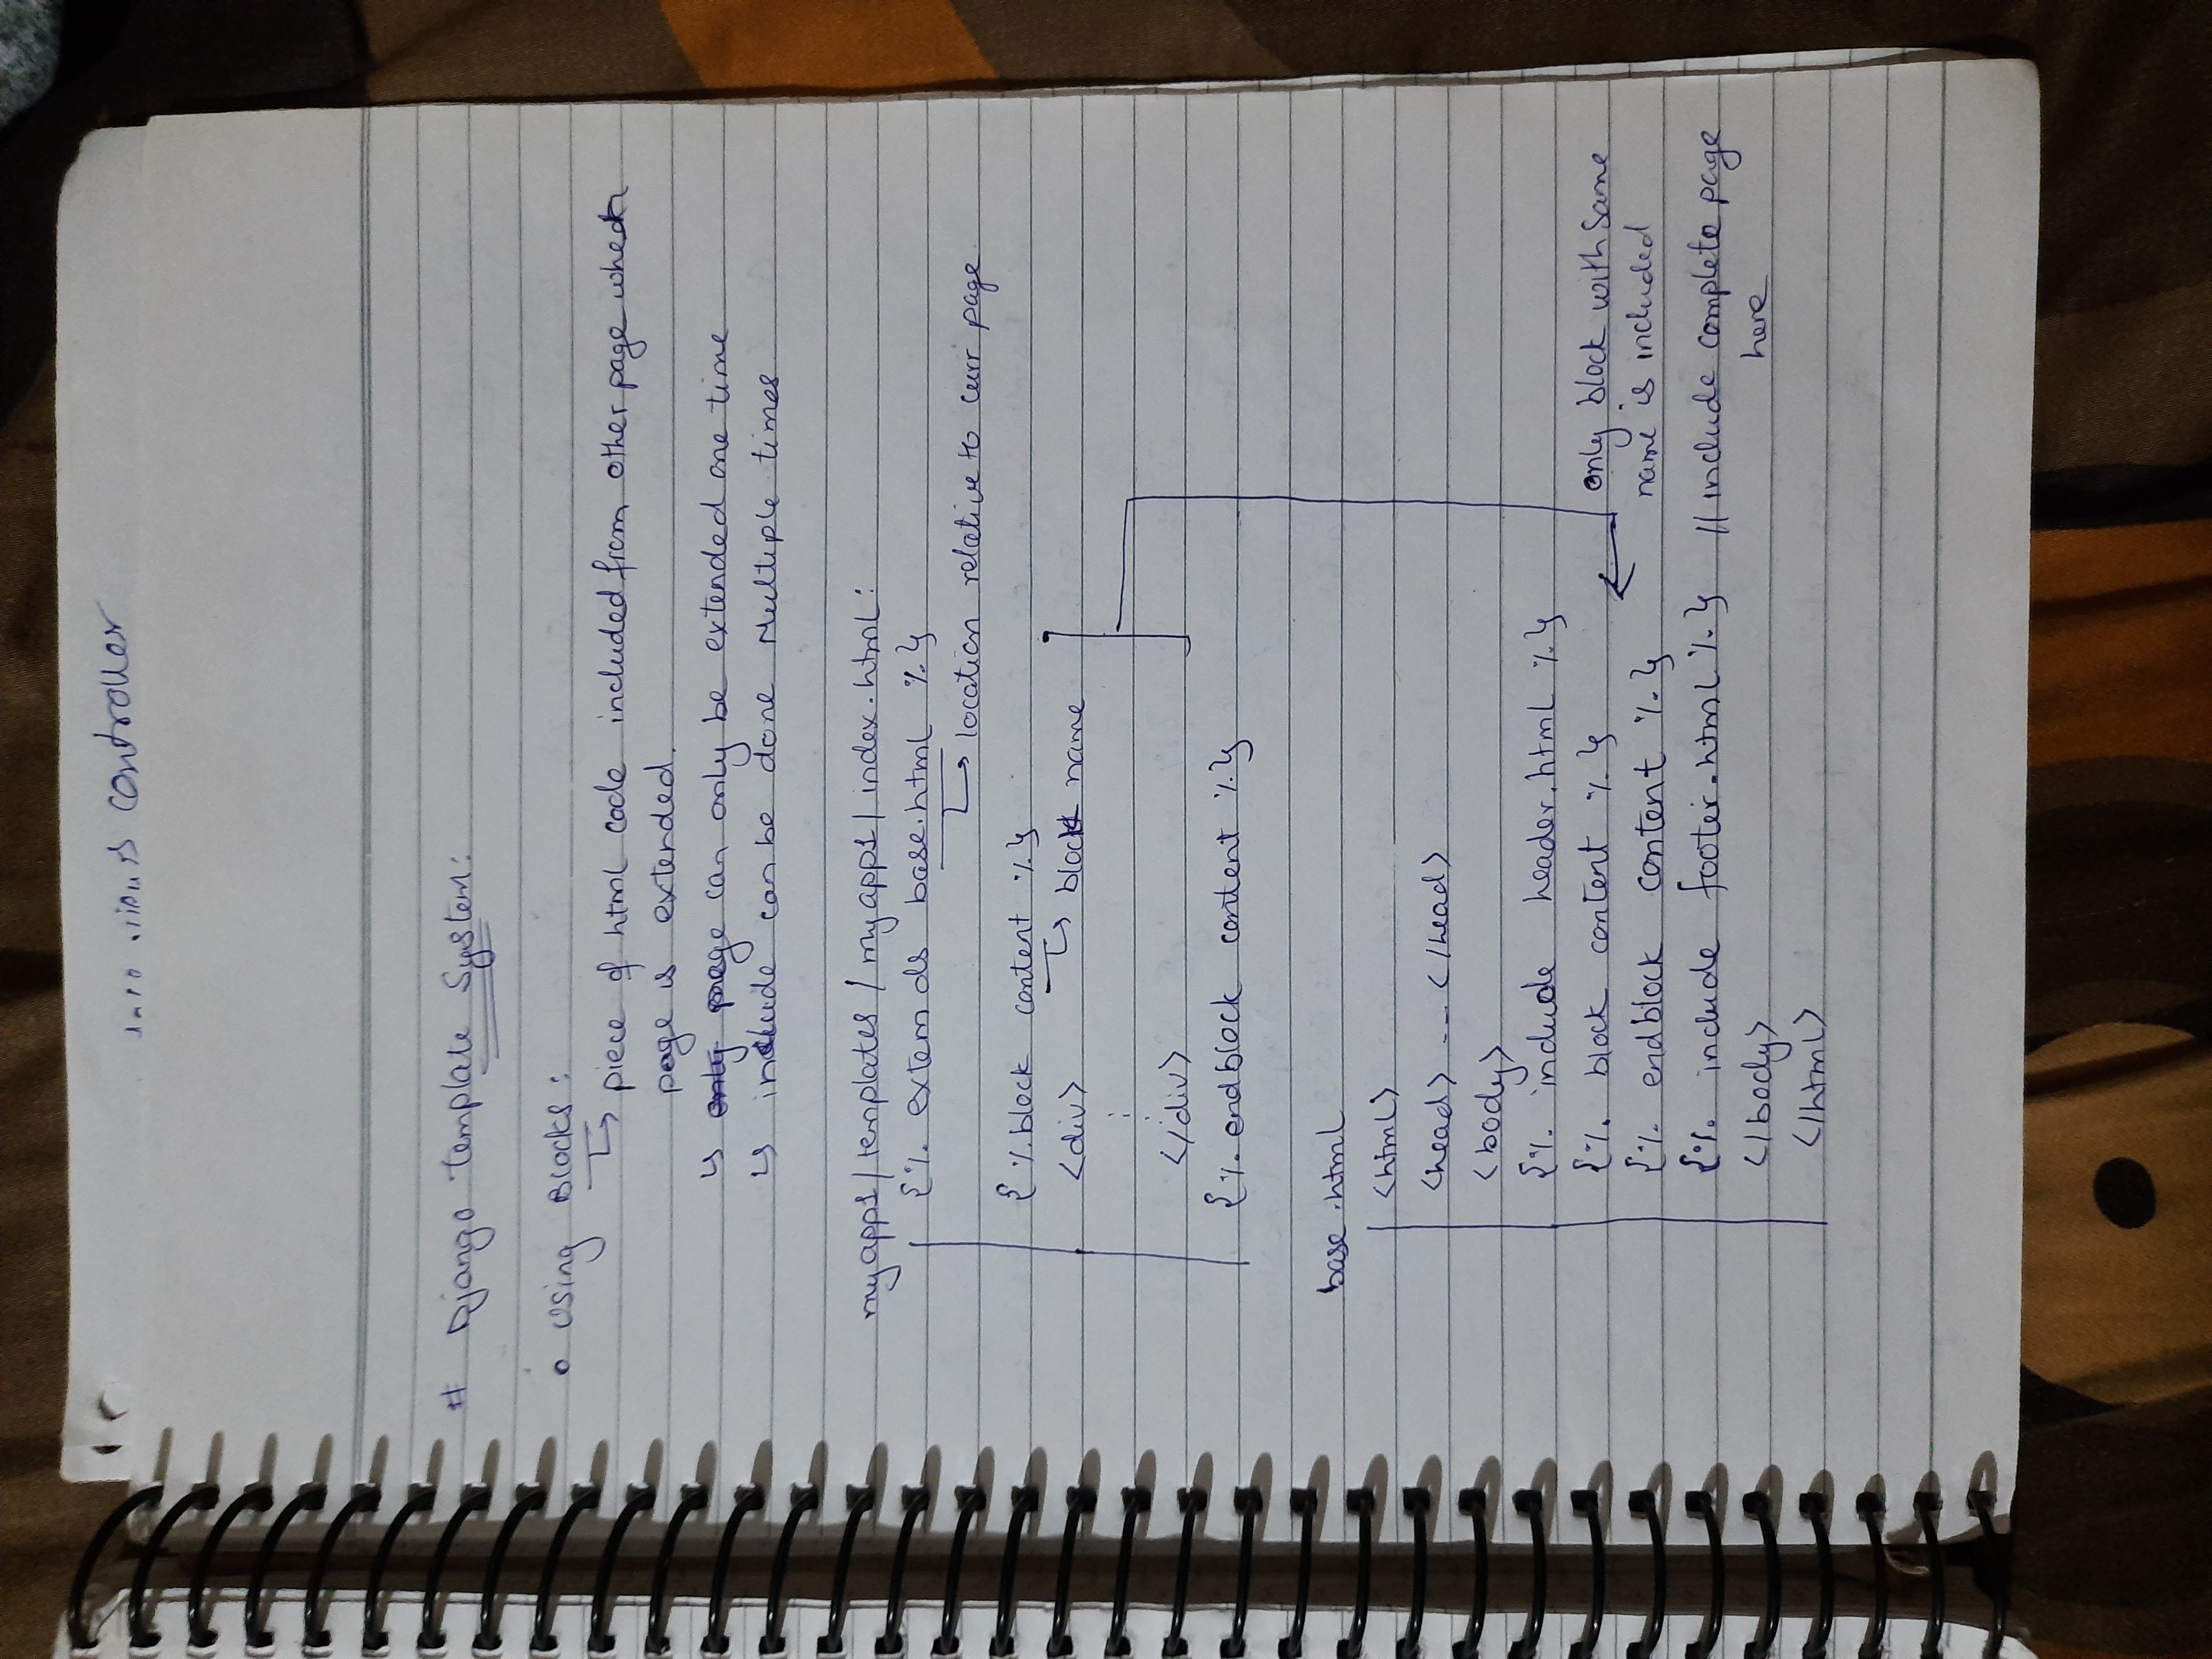 controller
# Django Template System:
o Using Blocks:
↳ piece of html code included from other page when
page is extended.
↳ only page can only be extended one time
↳ include can be done Multiple times
myapp1/templates/myapp1/index.html:
{% extends base.html %}
↳ location relative to curr page
{% block content %}
<div> ↳ block name
⋮
</div>
{% endblock content %}
base.html
<html>
<head> --- </head>
<body>
{% include header.html %}
{% block content %} ← only block with same
{% endblock content %} name is included
{% include footer.html %} // include complete page
</body> here
</html>